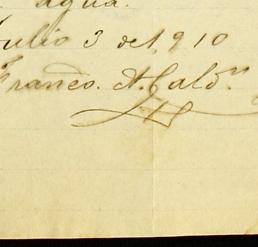 agua.
Julio 3 de 1910
Franco. A. Cald.ⁿ